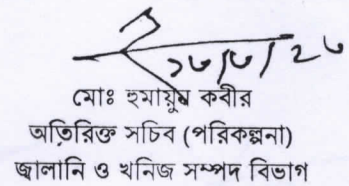 মোঃ হুমায়ুন কবীর
অতিরিক্ত সচিব (পরিকল্পনা)
জ্বালানি ও খনিজ সম্পদ বিভাগ